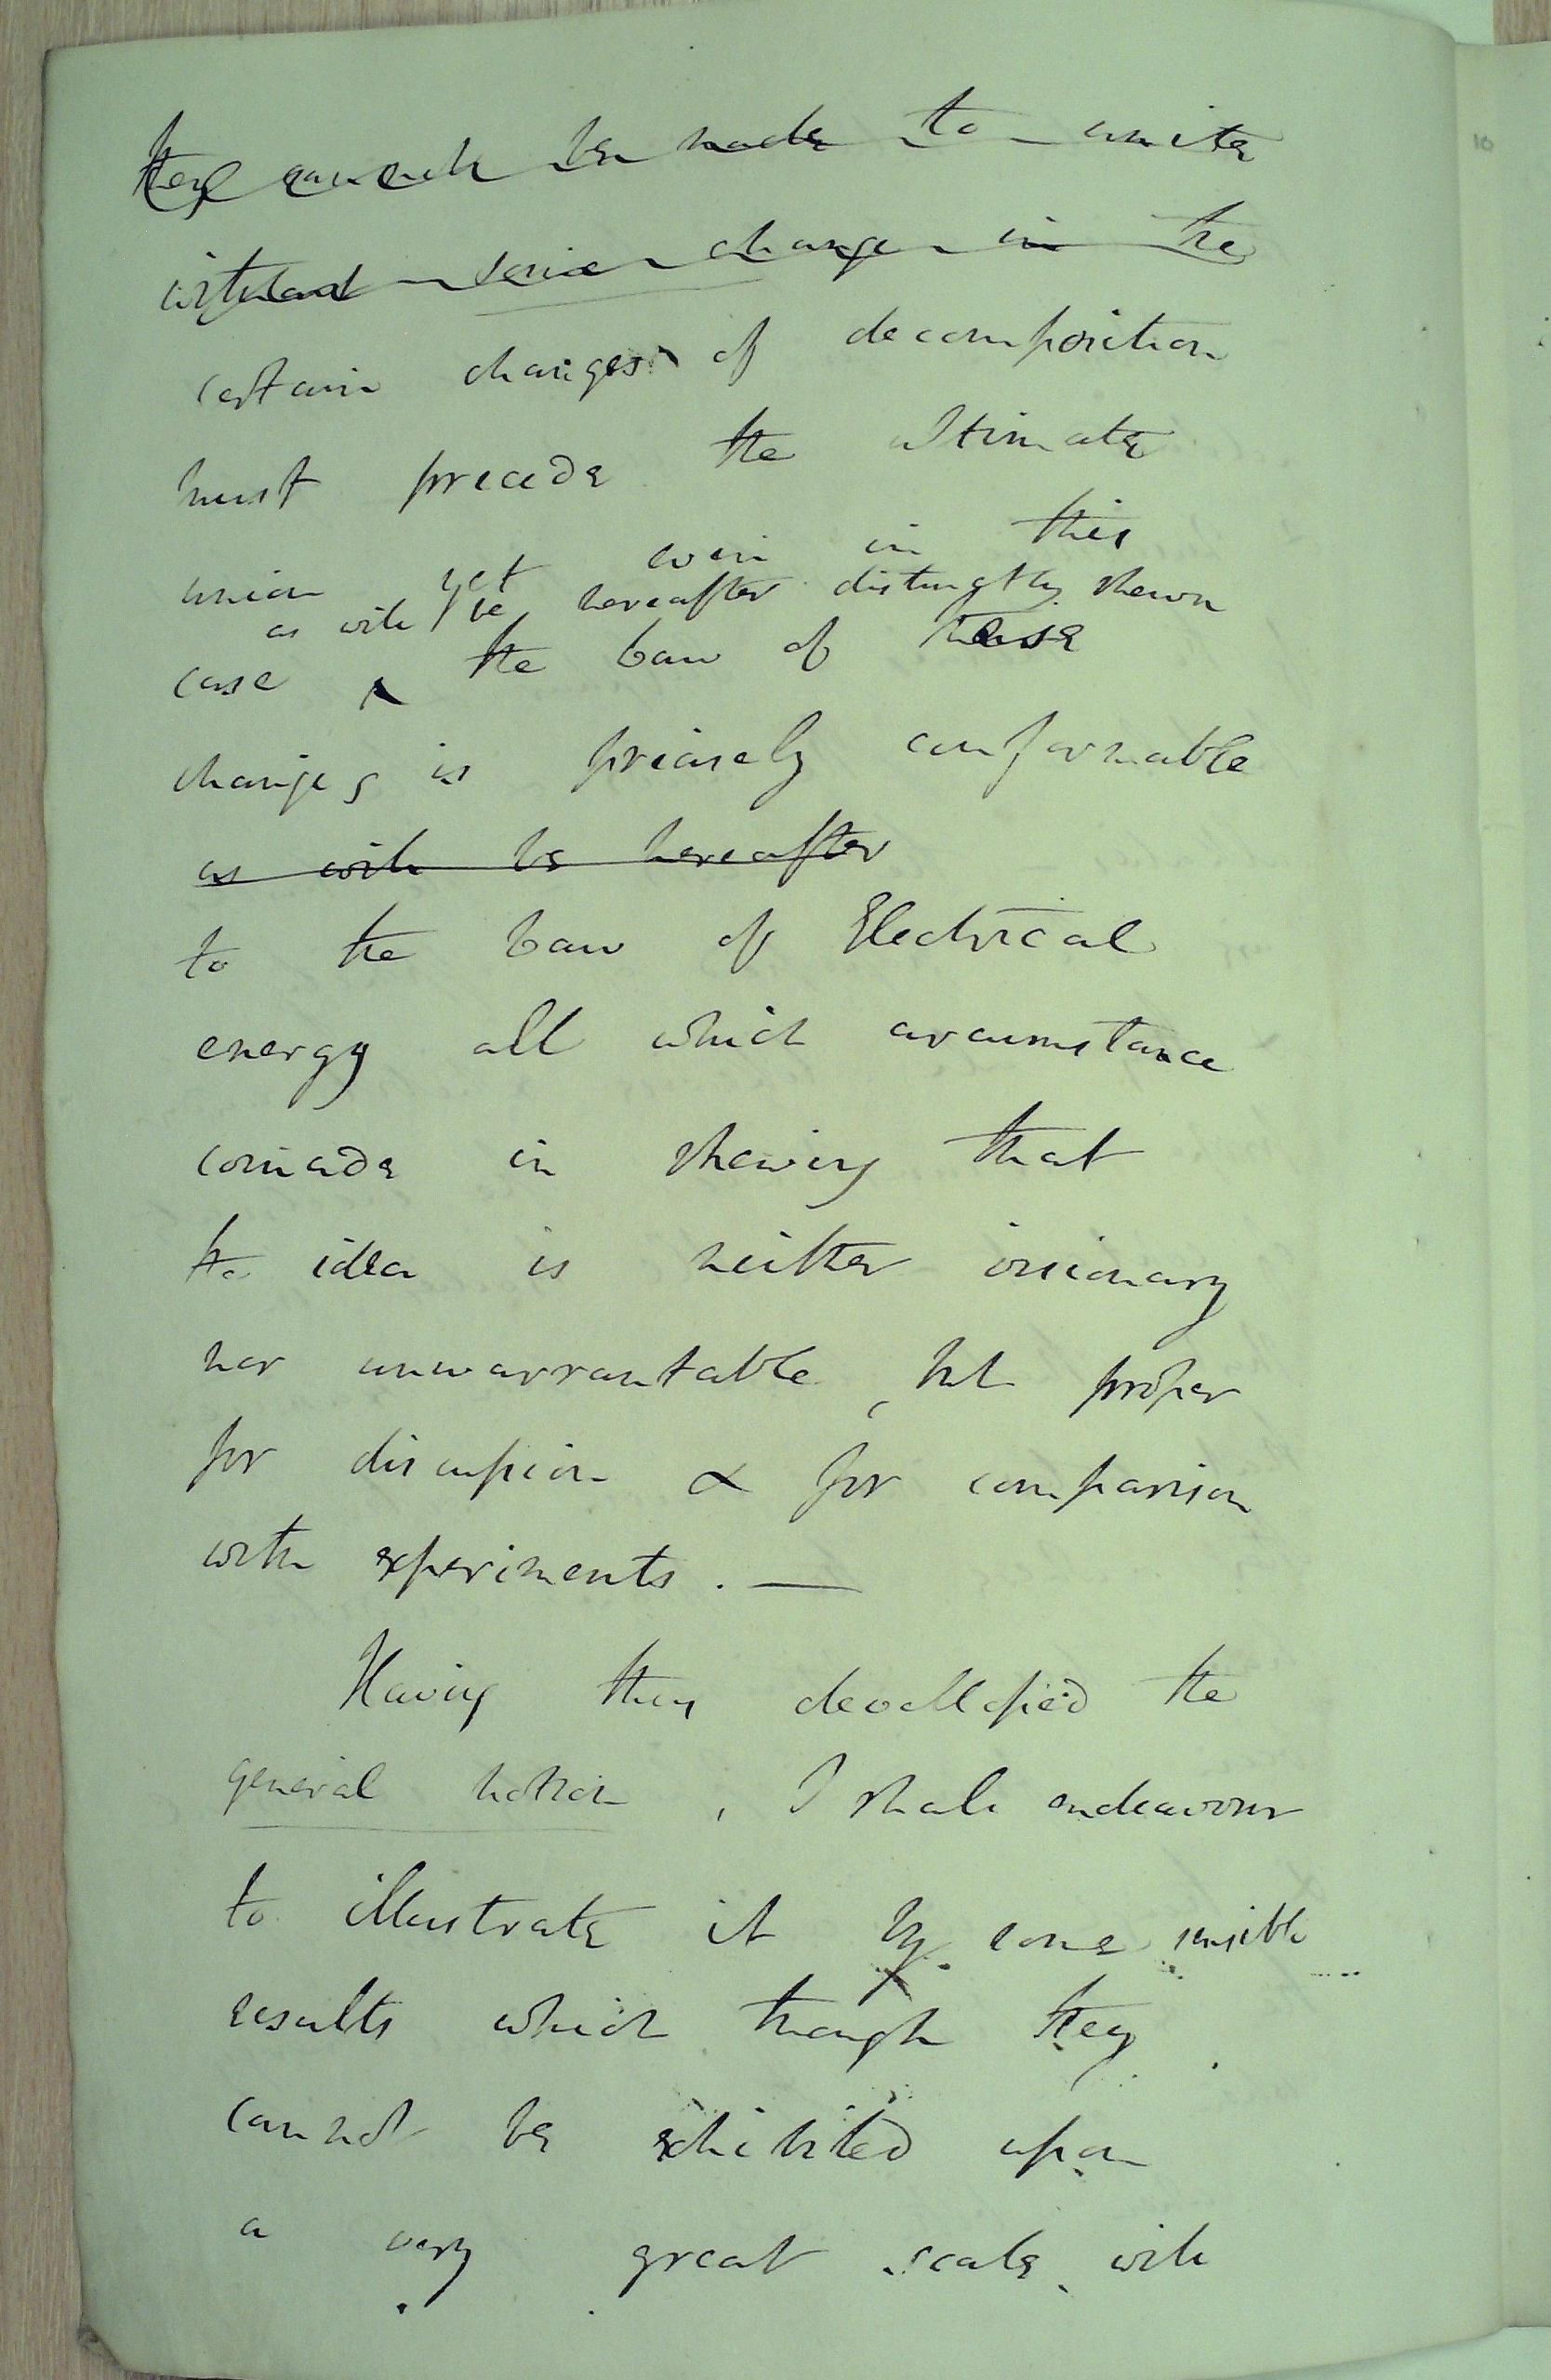 they cannot be made to unite
without some change in the
certain changes of decomposition
must precede the ultimate
union yet even in this
as will be hereafter distingtly shewn
case ^ the law of these
changes is pricisely conformable
as will be hereafter
to the law of Electrical
energy all which circumstance
coincide in shewing that
the idea is neither visionary
nor unwarrantable, but proper
for discussion & for comparison
with experiments. —
Having thus develloped the
general notion, I shall endeavour
to illustrate it by some sensible
results which though they
cannot be exhibited upon
a very great scale will